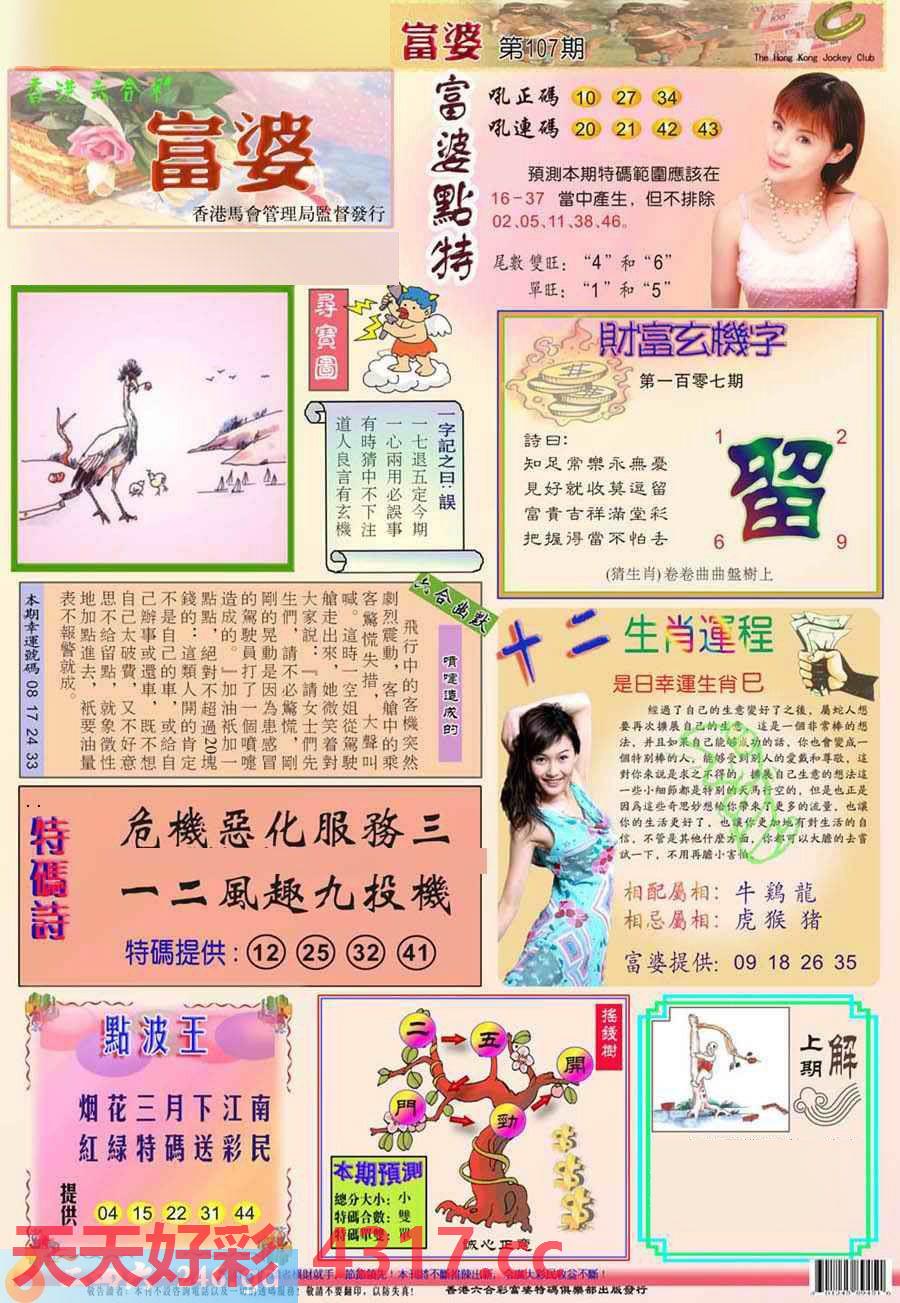 富婆 第107期
The Hong Kong Jockey Club
香港六合彩
富婆
香港馬會管理局監督發行
富婆點特
吼正碼 10 27 34
吼連碼 20 21 42 43
預測本期特碼範圍應該在
16-37 當中產生，但不排除
02、05、11、38、46。
尾數雙旺：“4”和“6”
單旺：“1”和“5”
尋寶圖
一字記之曰：誤
一七退五定今期
一心兩用必誤事
有時猜中不下注
道人良言有玄機
財富玄機字
第一百零七期
詩曰:
知足常樂永無憂
見好就收莫逗留
富貴吉祥滿堂彩
把握得當不怕丟
1 2
留
6 9
(猜生肖)卷卷曲曲盤樹上
六合幽默
噴嚏造成的
飛行中的客機突然
劇烈震動，客艙中的乘
客驚慌失措，大聲叫
喊。這時一空姐從駕駛
艙走出來，她微笑着對
大家說：『請女士們先
生們，請不必驚慌，剛
剛的晃動是因為患感冒
的駕駛員打了一個噴嚏
造成的。』加油衹加一
點點，絕對不超過20塊
錢的：這類人開的肯定
不是自己的車，或給自
己辦事或還車，既不想
自己太破費，又不好意
思不給留點，就象徵性
地加點進去，衹要油量
表不報警就成。
本期幸運號碼 08 17 24 33
十二生肖運程
是日幸運生肖巳
經過了自己的生意變好了之後，屬蛇人想
要再次擴展自己的生意，這是一個非常棒的想
法，并且如果自己能够成功的話，你也會變成一
個特別棒的人，能够受到別人的愛戴和尊敬，這
對你來説是求之不得的，擴展自己生意的想法這
一些小細節都是特別的天馬行空的，但是也正是
因爲這些奇思妙想給你帶來了更多的流量，也讓
你的生活更好了，也讓你更加地有對生活的自
信，不管是其他什麽方面，你都可以大膽的去嘗
試一下，不用再膽小害怕。
相配屬相：牛 鷄 龍
相忌屬相：虎 猴 猪
富婆提供：09 18 26 35
特碼詩
危機惡化服務三
一二風趣九投機
特碼提供：12 25 32 41
點波王
烟花三月下江南
紅緑特碼送彩民
提供 04 15 22 31 44
搖錢樹
二 五 開 門 勁
本期預測
總分大小：小
特碼合數：雙
特碼單雙：單
誠心正意
上期解
天天好彩 4317.cc
橫財就手，節節領先！本刊將不斷推陳出新，令廣大彩民收益不斷！
敬告讀者：本刊不設咨詢電話以及一切的透碼服務！敬請不要翻印，以防失真！
香港六合彩富婆特碼俱樂部出版發行